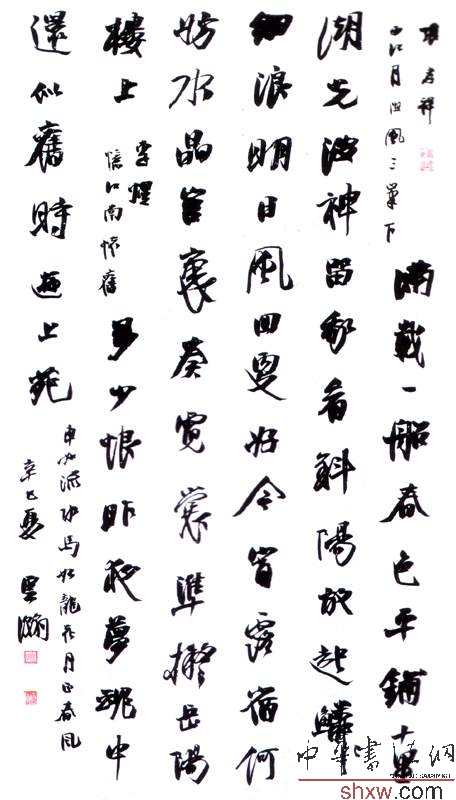 張孝祥
西江月阻風三峯下
滿載一船春色平鋪十里
湖光波神留我看斜陽放起鱗鱗
細浪明日風回更好今宵露宿何
妨水晶宮裏奏霓裳準擬岳陽
樓上
李煜
憶江南懷舊
多少恨昨夜夢魂中
還似舊時遊上苑
車如流水馬如龍花月正春風
辛巳夏
中華書法網
shxw.com